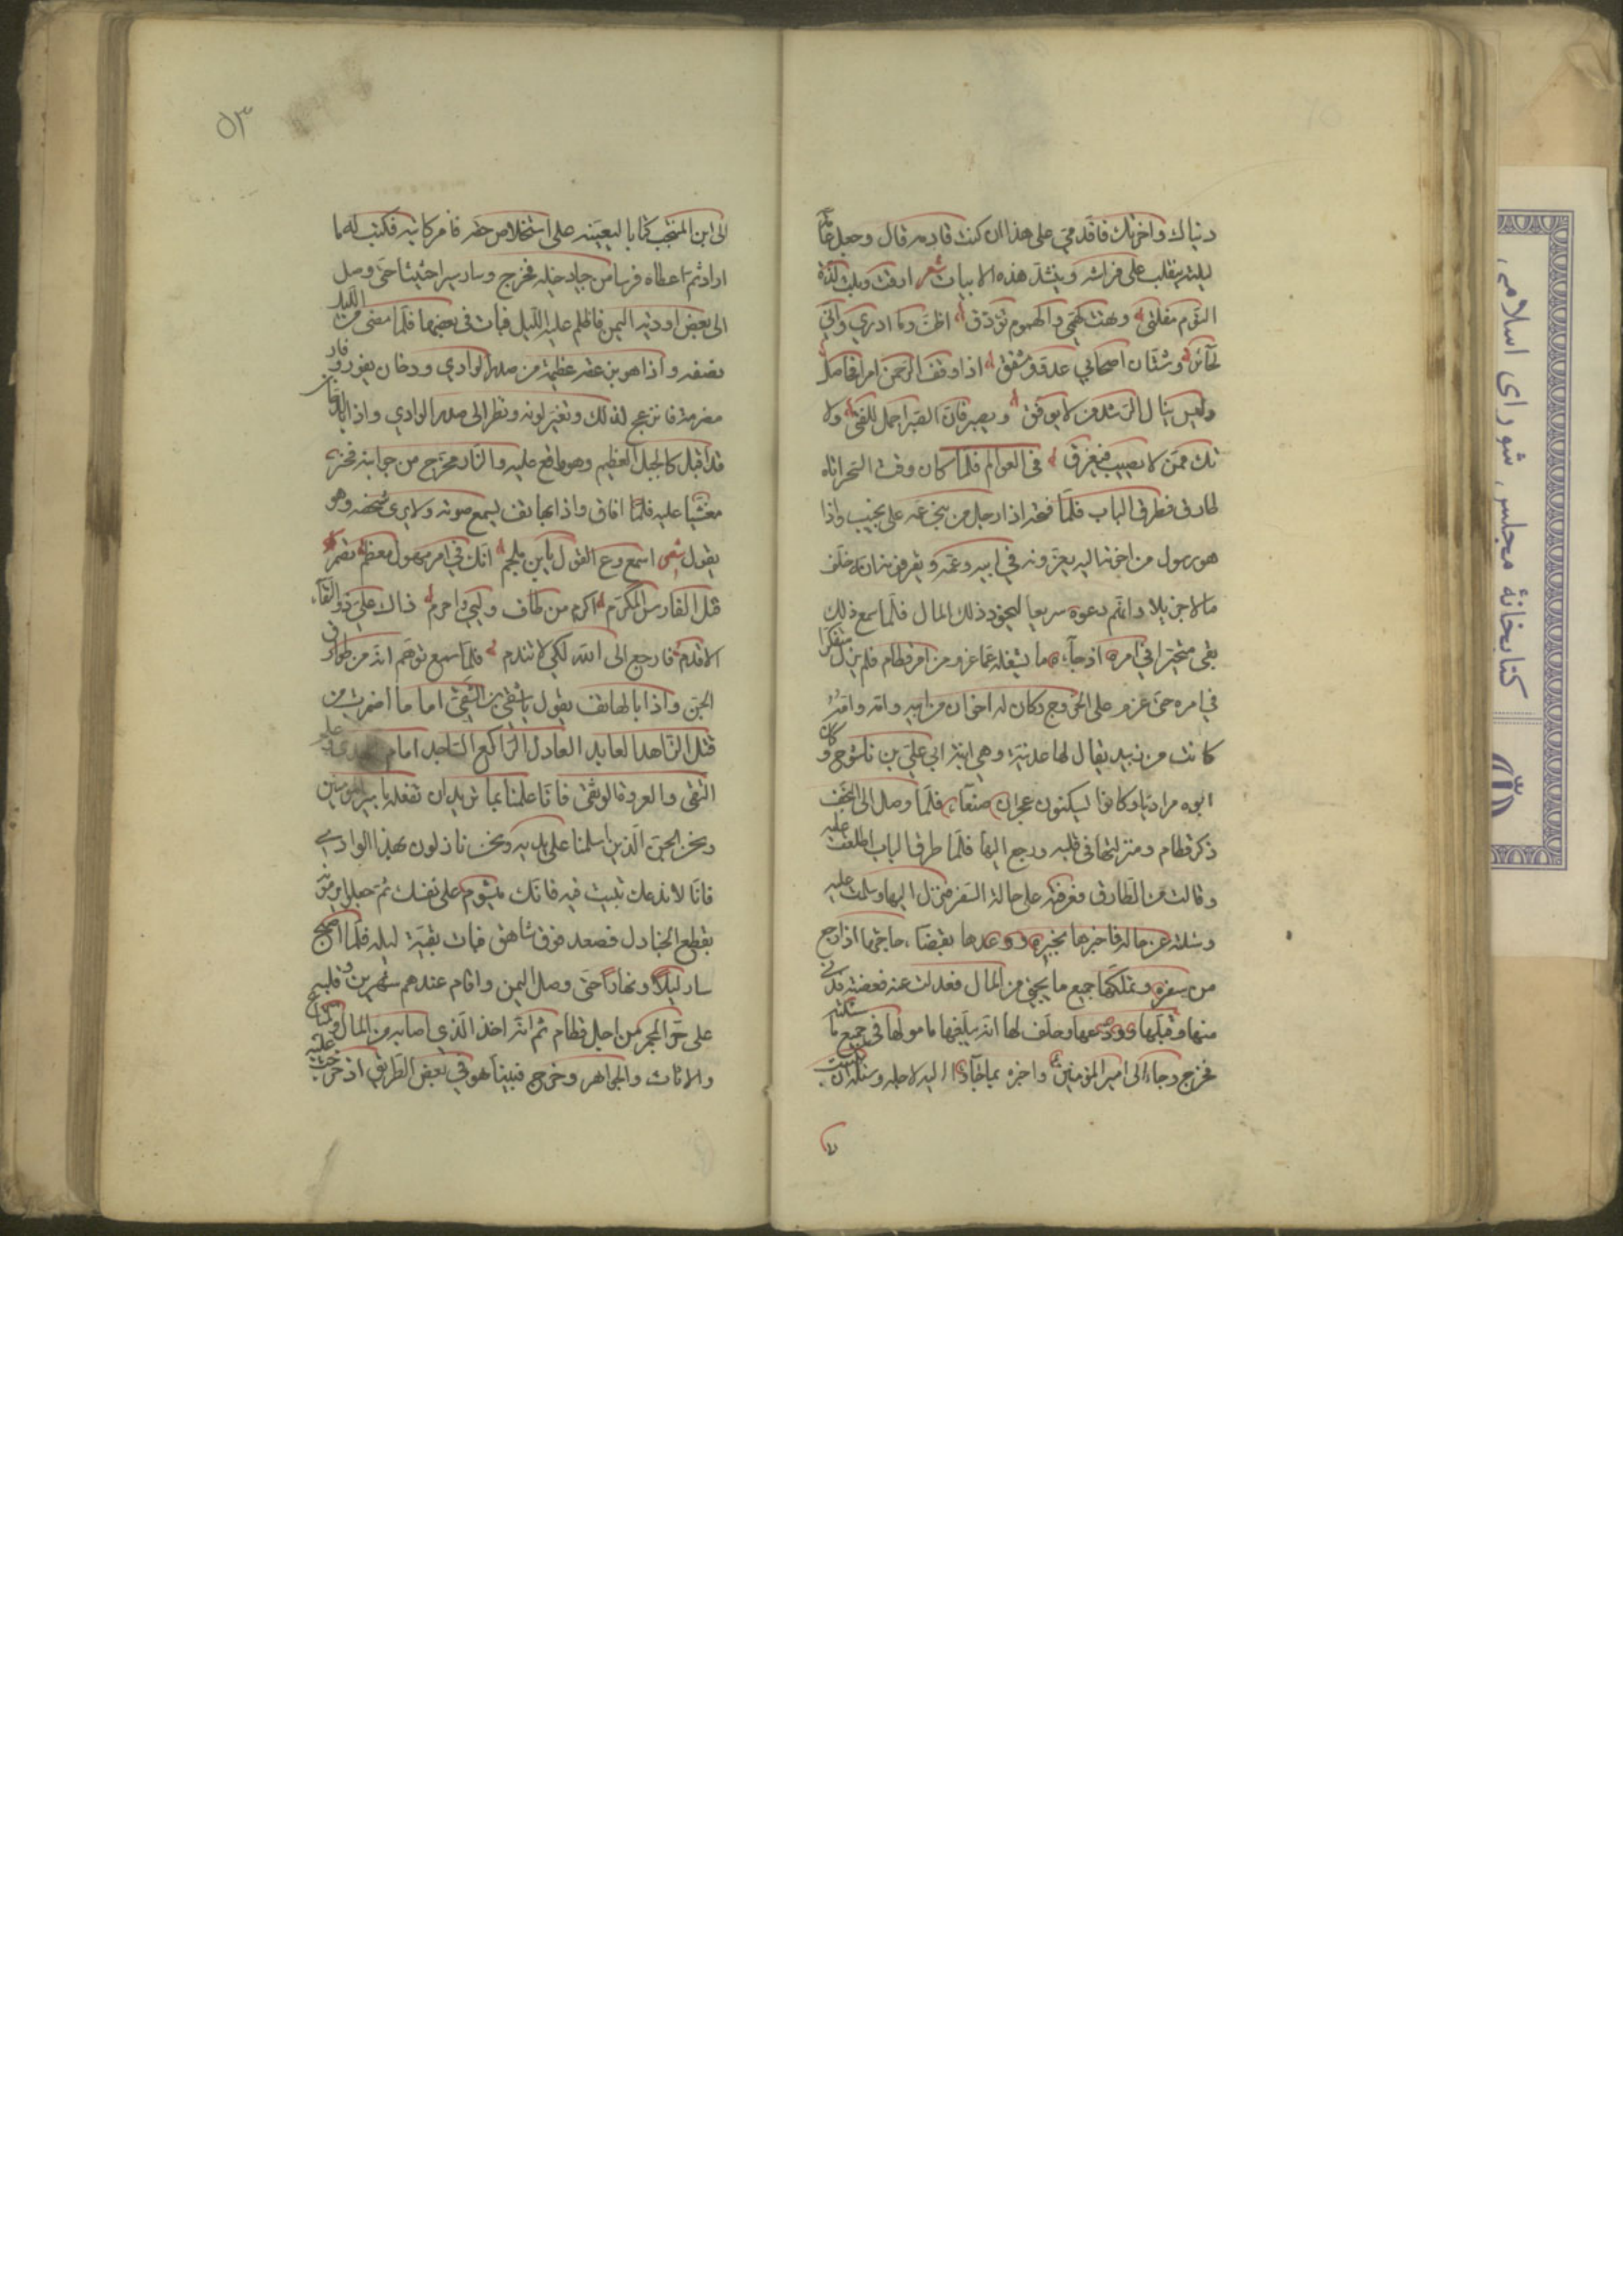 دنياك واخرتك فاقدمي على هذا ان كنت قادمه قال وجعل
ليلته يتقلب على فراشه وينشد هذه الابيات شعر ارقت
النوم مقلتي وبهت كهمي والهموم تؤرق اظن وما ادري واني
لحائر وشتان اصحابي عدو ومشفق اذا وقف الرحمن امرا
وليس ينال الرشد من لا يوفق ويصبر فان الصبر اجمل للفتى ولا
تك ممن لا يصيب فيغرق في العوالم فلما كان وقت السحر اتاه
طارق فطرق الباب فلما فتحه اذا رجل من بني عمه على نجيب واذا
هو رسول من اخوته اليه يعزونه في ابيه وعمه ويعرفونه انه خلف
مالا جزيلا وانهم دعوه سريعا ليحوز ذلك المال فلما سمع ذلك
بقي متحيرا في امره اذ جاءه ما يشغله عما عزم من امر قطام فلم يزل متفكرا
في امره حتى عزم على الخروج وكان له اخوان من ابيه وامه وامه
كانت من زبيد يقال لها عدنية وهي ابنة ابي علي بن ناشوج وكان
ابوه مراديا وكانوا ليسكنون عجران صنعاء فلما وصل الى النجف
ذكر قطام ومنزلتها في قلبه ورجع اليها فلما طرق الباب اطلعت عليه
وقالت من الطارق فعرفته على حالة السفر فنزل اليها وسلمت عليه
وسئلته عن حاله فاخبرها بخبره ووعدها بقضاء حاجتها اذا رجع
من سفره وتملكها جميع ما يجيئ من المال فعدلت عنه مغضبة فدنى
منها وقبلها وودعها وحلف لها انه يبلغها مامولها في جميع ما سئلته
فخرج وجاء الى امير المؤمنين واخبره بما جاؤا اليه لاجله وسئله ان يكتب
الى ابن المنتجب كتابا ليعينه على استخلاص حقه فامر كاتبه فكتب له ما
اراد ثم اعطاه فرسا من جياد خيله فخرج وسار سيرا حثيثا حتى وصل
الى بعض اودية اليمن فاظلم عليه الليل فبات في بعضها فلما مضى من الليل
نصفه واذا هو بزعقة عظيمة من صدر الوادي ودخان يفور ونار
مضرمة فانزعج لذلك وتغير لونه ونظر الى صدر الوادي واذا بالدخان
قد اقبل كالجبل العظيم وهو واقع عليه والنار تخرج من جوانبه فخر
مغشيا عليه فلما افاق واذا بهاتف يسمع صوته ولا يرى شخصه وهو
يقول شعر اسمع وع القول يابن ملجم انك في امر مهول معظم تضمر
قتل الفارس المكرم اكرم من طاف ولبى واحرم ذاك علي ذو التقاء
الاقدم فارجع الى الله لكي لا تندم فلما سمع توهم انه من طوارق
الجن واذا بالهاتف يقول يا شقي بن الشقي اما ما اضمرت من
قتل الزاهد العابد العادل الراكع الساجد امام الهدى وعلم
التقى والعروة الوثقى فانا علمنا بما تريد ان تفعله بامير المؤمنين
ونحن الجن الذين اسلمنا على يديه ونحن نازلون بهذا الوادي
فانا لا ندعك تبيت فيه فانك ميشوم على نفسك ثم جعلوا يرمونه
بقطع الجنادل فصعد فوق شاهق فبات بقية ليله فلما اصبح
سار ليلا ونهارا حتى وصل اليمن واقام عندهم شهرين وقلبه
على حر الجمر من اجل قطام ثم انه اخذ الذي اصابه من المال والمتاع
والاثاث والجواهر وخرج فبينا هو في بعض الطريق اذ خرجت عليه
٥٣
كتابخانهٔ مجلس شورای اسلامی